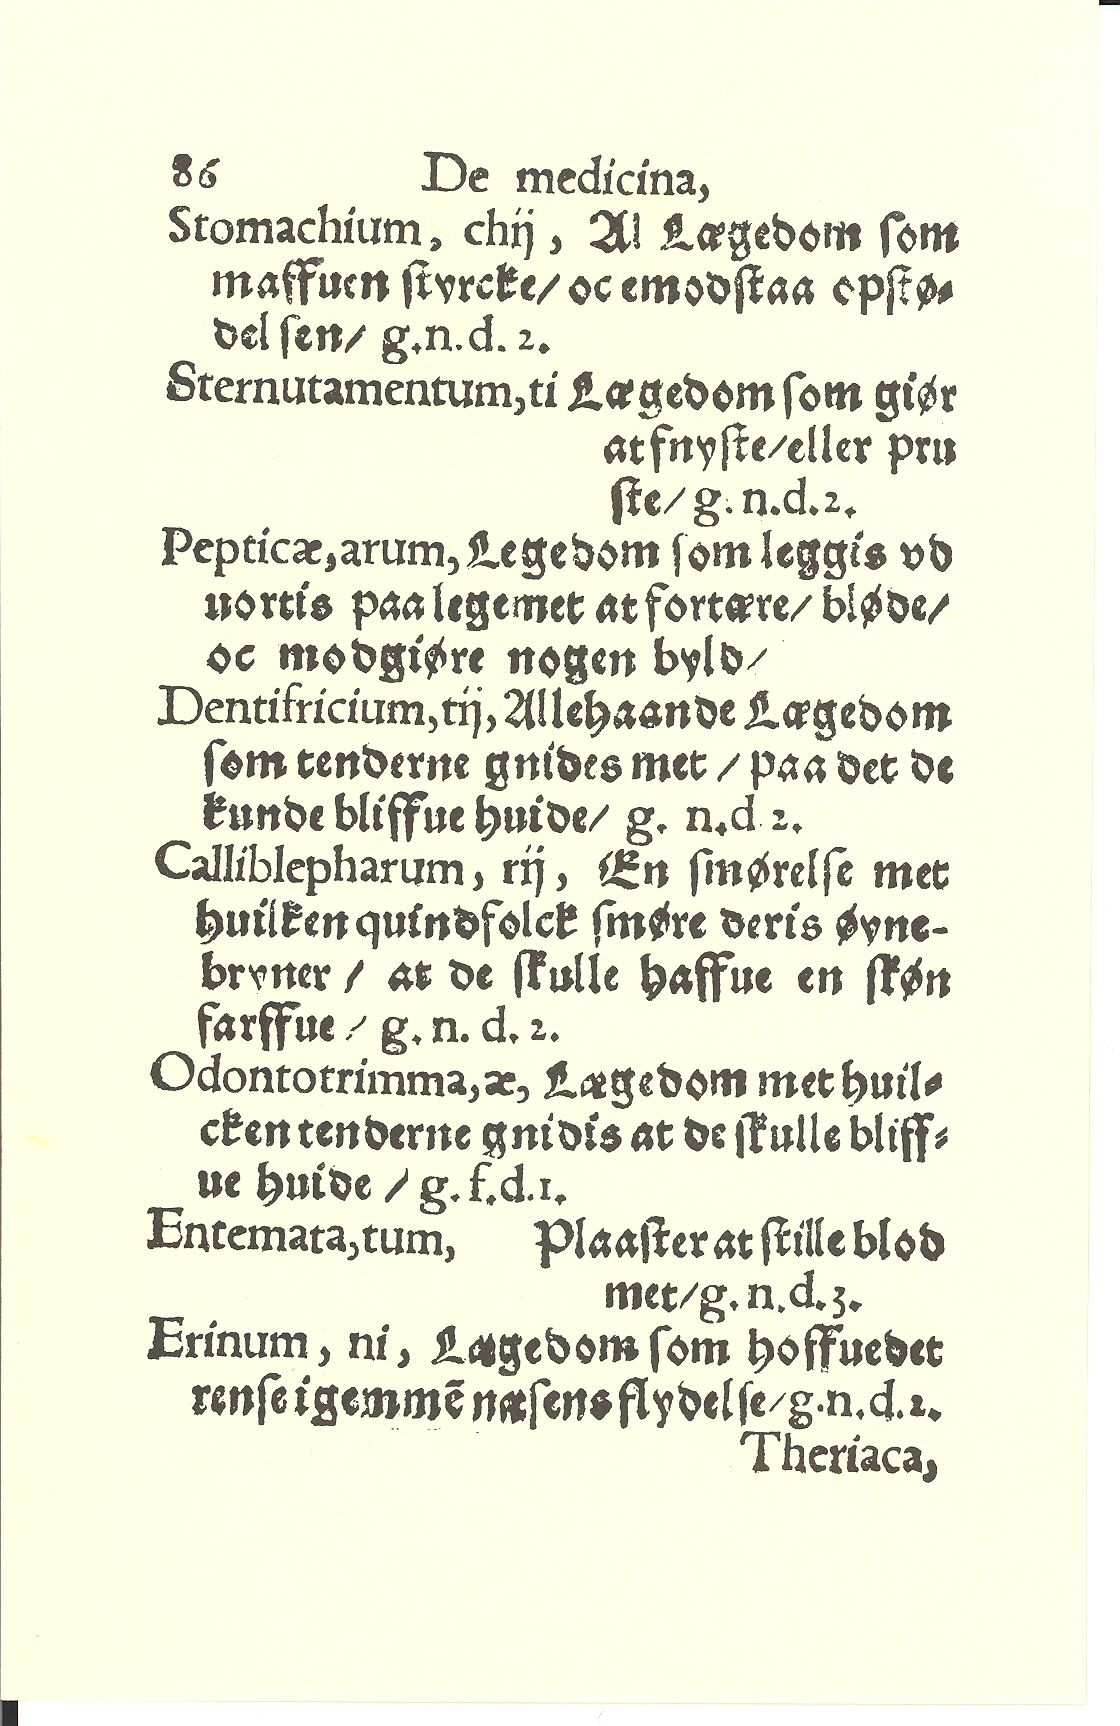 86 De medicina,
Stomachium, chij, Al Lægedom som
maffuen styrcke/ oc emodstaa opstø-
delsen/ g.n.d. 2.
Sternutamentum,ti Lægedom som giør
at fnyste/eller pru
ste/ g. n.d.2.
Pepticæ,arum, Legedom som leggis vd
uortis paa legemet at fortære/ bløde/
oc modgiøre nogen byld/
Dentifricium,tij, Allehaande Lægedom
som tenderne gnides met / paa det de
kunde bliffue huide/ g. n.d 2.
Calliblepharum, rij, En smørelse met
huilken quindfolck smøre deris øyne-
bryner / at de skulle haffue en skøn
farffue / g. n. d. 2.
Odontotrimma,æ, Lægedom met huil-
cken tenderne gnidis at de skulle bliff-
ue huide / g. f.d.1.
Entemata,tum, Plaaster at stille blod
met/g. n.d.3.
Erinum, ni, Lægedom som hoffuedet
rense igemmē næsens flydelse/g.n.d.2.
Theriaca,